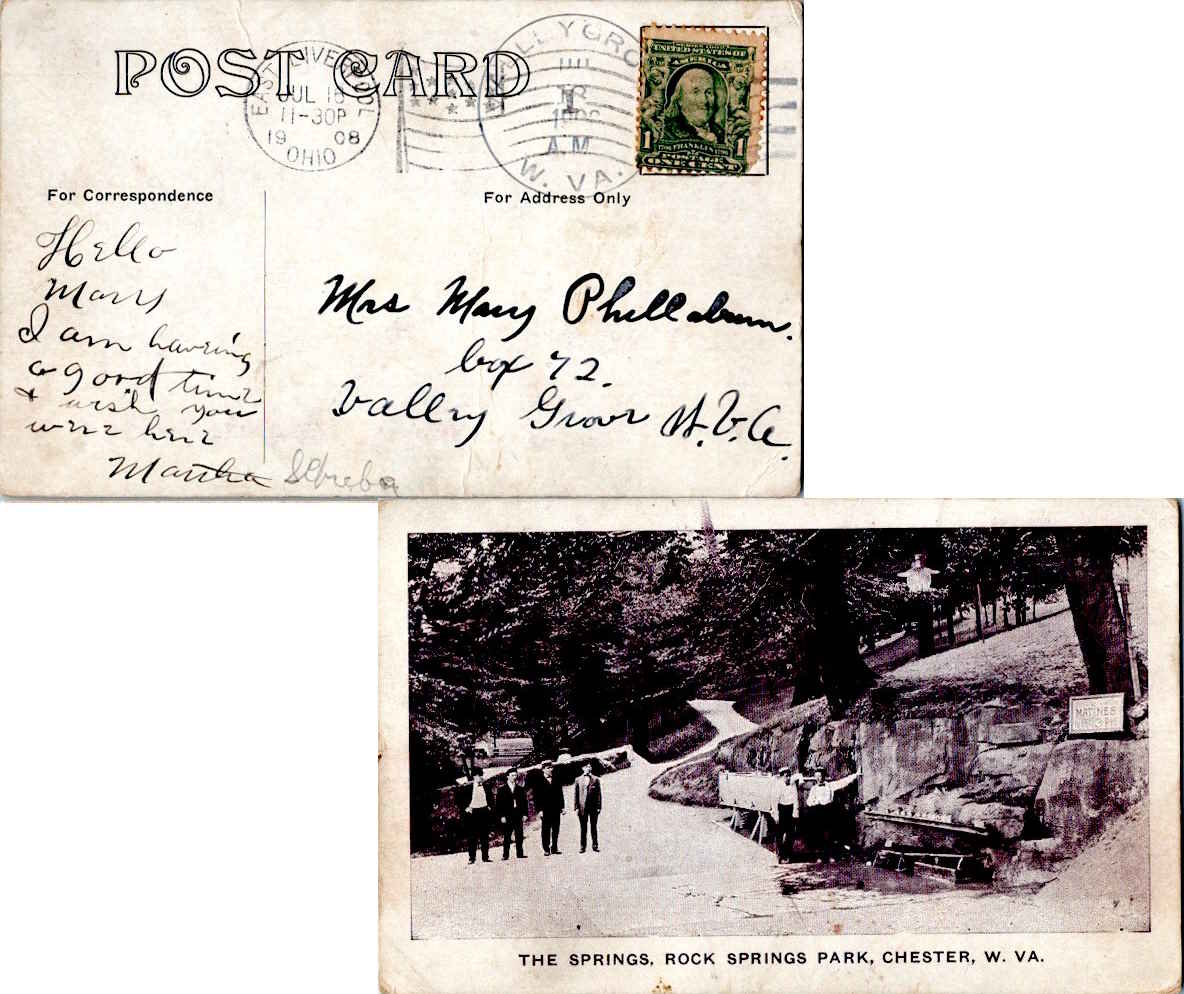 POST CARD
EAST LIVERPOOL
JUL 18
11-30P
19 08
OHIO
VALLEYGRO
A.M.
W. VA.
SERIES 1902
UNITED STATES OF
AMERICA
1 FRANKLIN 1
POSTAGE
ONE CENT
For Correspondence
For Address Only
Hello
Mary
I am haveing
a good time
& wish you
were here
Martha
Mrs Mary Phillabaum.
box 72.
Valley Grove W.Va.
MATINEE
THE SPRINGS, ROCK SPRINGS PARK, CHESTER, W. VA.